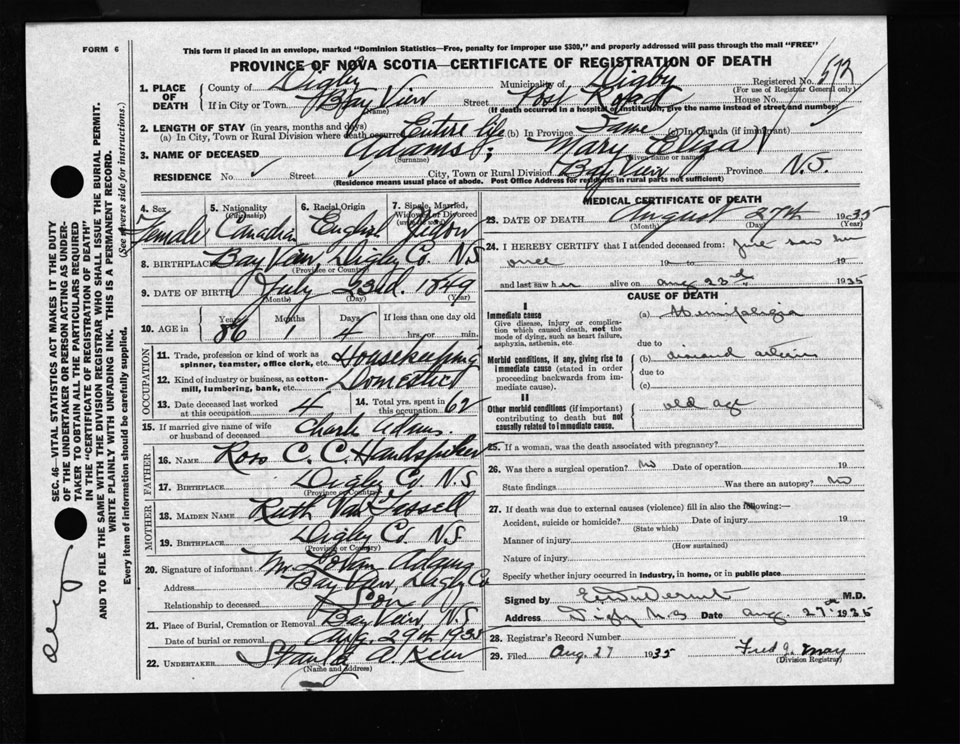 FORM 6
This form if placed in an envelope, marked "Dominion Statistics—Free, penalty for improper use $300," and properly addressed will pass through the mail "FREE"
PROVINCE OF NOVA SCOTIA—CERTIFICATE OF REGISTRATION OF DEATH
1. PLACE OF DEATH
County of Digby Municipality of Digby Registered No. 572
(For use of Registrar General only)
If in City or Town Bay View Street House No.
(If death occurred in a hospital or institution, give the name instead of street and number)
2. LENGTH OF STAY (in years, months and days)
(a) In City, Town or Rural Division where death occurred Entire life (b) In Province Same (c) In Canada (if immigrant)
3. NAME OF DECEASED Adams; Mary Eliza
(Surname) (Given name or names)
RESIDENCE No. Street City, Town or Rural Division Bay View Province N.S.
(Residence means usual place of abode. Post Office Address for residents in rural parts not sufficient)
4. Sex Female
5. Nationality (Citizenship) Canadian
6. Racial Origin English
7. Single, Married, Widowed or Divorced Widow
8. BIRTHPLACE Bay View, Digby Co. N.S
(Province or Country)
9. DATE OF BIRTH July 23rd. 1849
(Month) (Day) (Year)
10. AGE in Years Months Days If less than one day old
86 1 4 hrs. or min.
OCCUPATION
11. Trade, profession or kind of work as spinner, teamster, office clerk, etc. Housekeeping
12. Kind of industry or business, as cotton-mill, lumbering, bank, etc. Domestic
13. Date deceased last worked at this occupation 4
14. Total yrs. spent in this occupation 62
15. If married give name of wife or husband of deceased Charles Adams.
FATHER
16. NAME Ross C. C. Handspiker
17. BIRTHPLACE Digby Co. N.S
(Province or Country)
MOTHER
18. MAIDEN NAME Ruth Van Tassell
19. BIRTHPLACE Digby Co. N.S.
(Province or Country)
20. Signature of informant Mr. Adams
Address Bay View, Digby Co
Relationship to deceased Son
21. Place of Burial, Cremation or Removal Bay View, N.S
Date of burial or removal Aug. 29th 1935
22. UNDERTAKER A.
(Name and Address)
MEDICAL CERTIFICATE OF DEATH
23. DATE OF DEATH August 27th 1935
(Month) (Day) (Year)
24. I HEREBY CERTIFY that I attended deceased from: just saw her
once 19 to 19
and last saw her alive on Aug 23rd 1935
CAUSE OF DEATH
I
Immediate cause
Give disease, injury or complication which caused death, not the mode of dying, such as heart failure, asphyxia, asthenia, etc.
(a) Hemiplegia
due to
Morbid conditions, if any, giving rise to immediate cause (stated in order proceeding backwards from immediate cause).
(b) diseased arteries
due to
(c)
II
Other morbid conditions (if important) contributing to death but not causally related to immediate cause.
old age
25. If a woman, was the death associated with pregnancy?
26. Was there a surgical operation? No Date of operation 19
State findings Was there an autopsy? No
27. If death was due to external causes (violence) fill in also the following:—
Accident, suicide or homicide? Date of injury 19
(State which)
Manner of injury
(How sustained)
Nature of injury
Specify whether injury occurred in industry, in home, or in public place
Signed by M.D.
Address Digby N.S Date Aug. 27th 1935
28. Registrar's Record Number
29. Filed Aug. 27 1935 Fred J. May
(Division Registrar)
SEC. 46—VITAL STATISTICS ACT MAKES IT THE DUTY
OF THE UNDERTAKER OR PERSON ACTING AS UNDER-
TAKER TO OBTAIN ALL THE PARTICULARS REQUIRED
IN THE "CERTIFICATE OF REGISTRATION OF DEATH"
AND TO FILE THE SAME WITH THE DIVISION REGISTRAR WHO SHALL ISSUE THE BURIAL PERMIT.
WRITE PLAINLY WITH UNFADING INK. THIS IS A PERMANENT RECORD.
Every item of information should be carefully supplied. (See reverse side for instructions.)